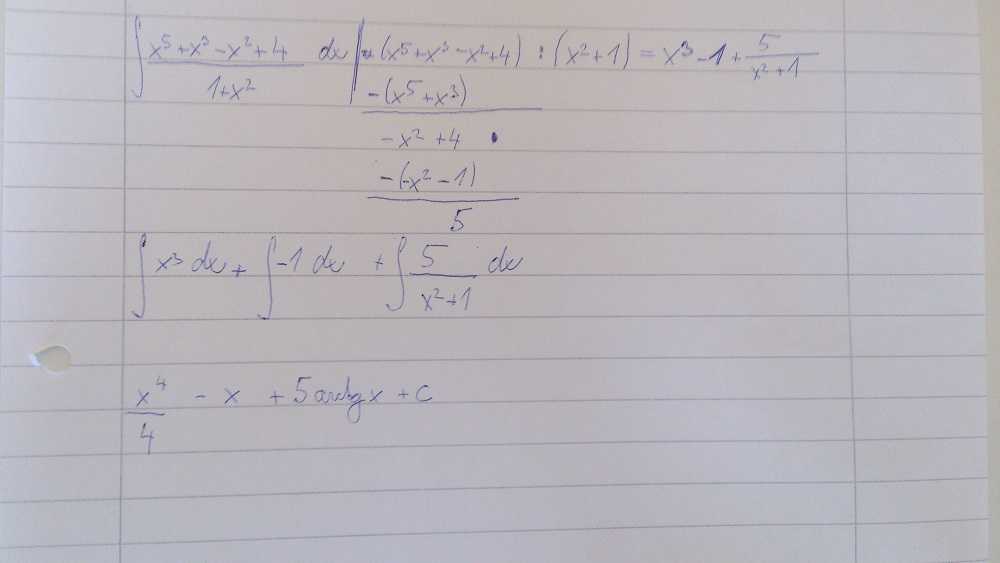 ∫ (x⁵+x³-x²+4)/(1+x²) dx | = (x⁵+x³-x²+4) : (x²+1) = x³-1+ 5/(x²+1)
-(x⁵+x³)
-x²+4
-(-x²-1)
5
∫ x³ dx + ∫ -1 dx + ∫ 5/(x²+1) dx
x⁴/4 - x + 5 arctg x + C